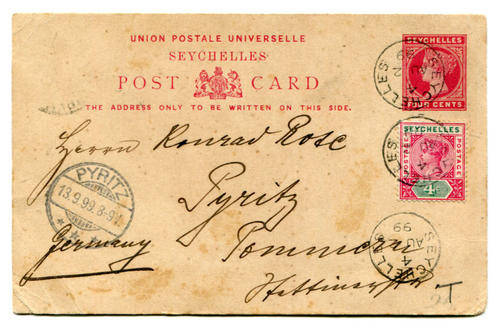 UNION POSTALE UNIVERSELLE
SEYCHELLES
POST CARD
THE ADDRESS ONLY TO BE WRITTEN ON THIS SIDE.
SEYCHELLES
FOUR CENTS
SEYCHELLES
AU
99
SEYCHELLES
POSTAGE
POSTAGE
4
SEYCHELLES
Herrn Konrad Rose
PYRITZ
13.9.99.8-9V.
Pyritz
Germany
Pommern
SEYCHELLES
4
AU
99
T